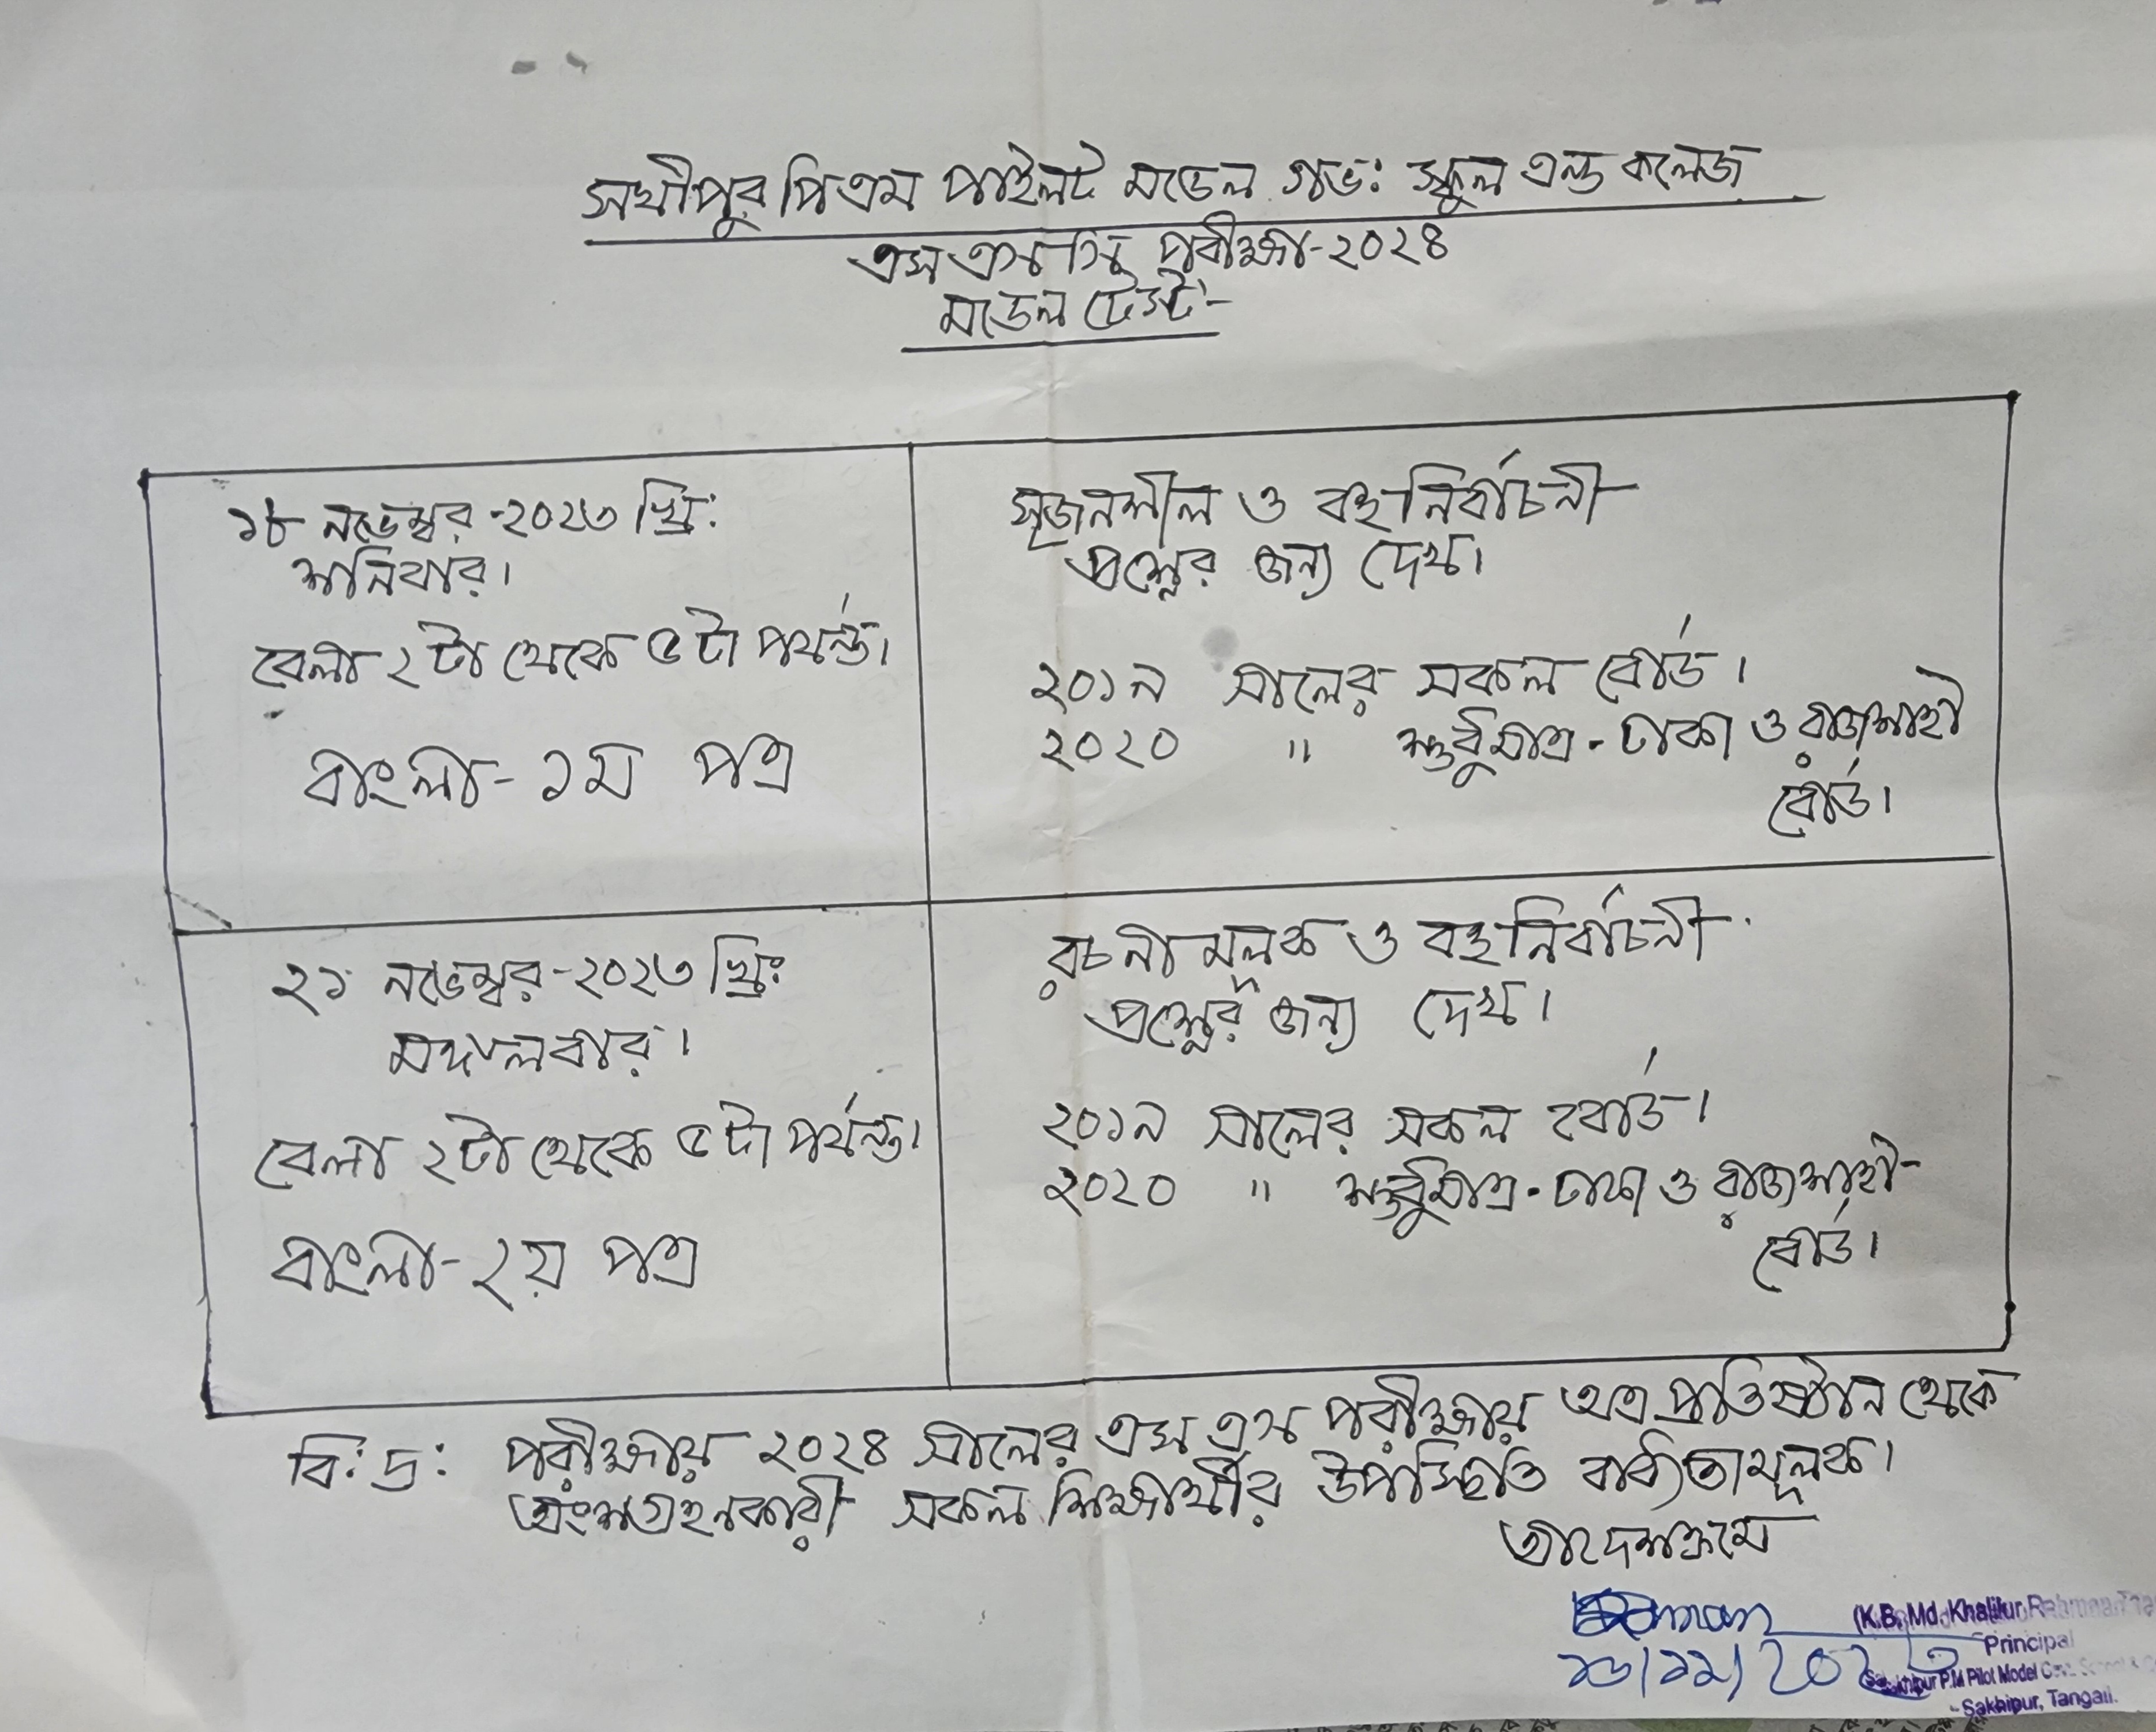 সখীপুর পিএম পাইলট মডেল গভ: স্কুল এন্ড কলেজ
এস এস সি পরীক্ষা-২০২৪
মডেল টেস্ট-
১৮ নভেম্বর-২০২৩ খ্রি:
শনিবার।
বেলা ২টা থেকে ৫টা পর্যন্ত।
বাংলা-১ম পত্র
সৃজনশীল ও বহুনির্বাচনী
প্রশ্নের জন্য দেখ।
২০১৯ সালের সকল বোর্ড।
২০২০ " শুধুমাত্র-ঢাকা ও রাজশাহী
বোর্ড।
২১ নভেম্বর-২০২৩ খ্রি:
মঙ্গলবার।
বেলা ২টা থেকে ৫টা পর্যন্ত।
বাংলা-২য় পত্র
রচনামূলক ও বহুনির্বাচনী
প্রশ্নের জন্য দেখ।
২০১৯ সালের সকল বোর্ড।
২০২০ " শুধুমাত্র-ঢাকা ও রাজশাহী-
বোর্ড।
বি:দ্র: পরীক্ষায় ২০২৪ সালের এস এস পরীক্ষায় অত্র প্রতিষ্ঠান থেকে
অংশগ্রহনকারী সকল শিক্ষার্থীর উপস্থিতি বাধ্যতামূলক।
আদেশক্রমে
(K.B. Md. Khalilur Rahman
Principal
Sakhipur P.M Pilot Model
Sakhipur, Tangail.